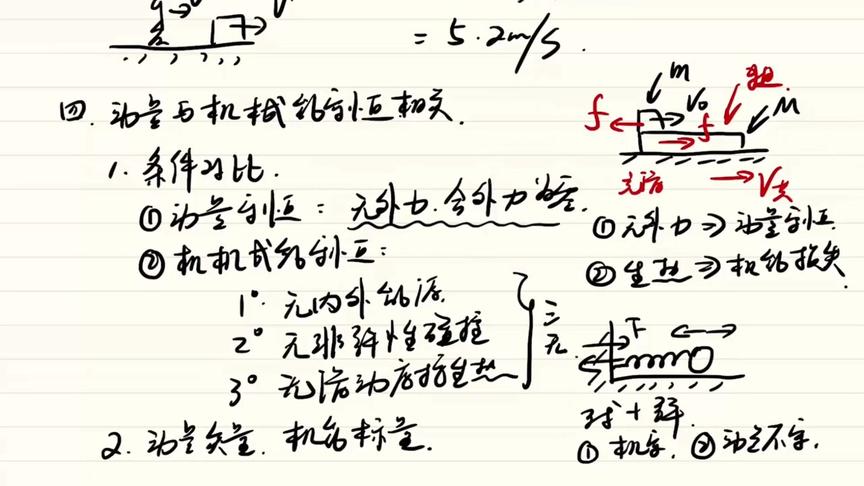 = 5.2m/s.
四. 动量与机械能守恒相关.
1. 条件对比.
① 动量守恒: 无外力. 合外力为零.
② 机机械能守恒:
1° 无内外能源.
2° 无非弹性碰撞
3° 无滑动摩擦生热
三无.
2. 动量矢量. 机能标量.
m
V₀
f
f
M
光滑
V共
① 无外力⇒动量守恒.
② 生热⇒机能损失.
F
球+弹.
① 机守. ② 动量不守.